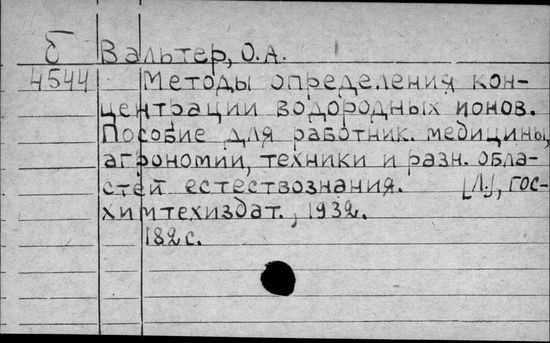 б Вальтер, О.А.
4544 Методы определения кон-
центрации водородных ионов.
Пособие для работник. медицины,
агрономии, техники и разн. обла-
стей естествознания. [Л.], гос-
химтехиздат., 1932.
182 с.